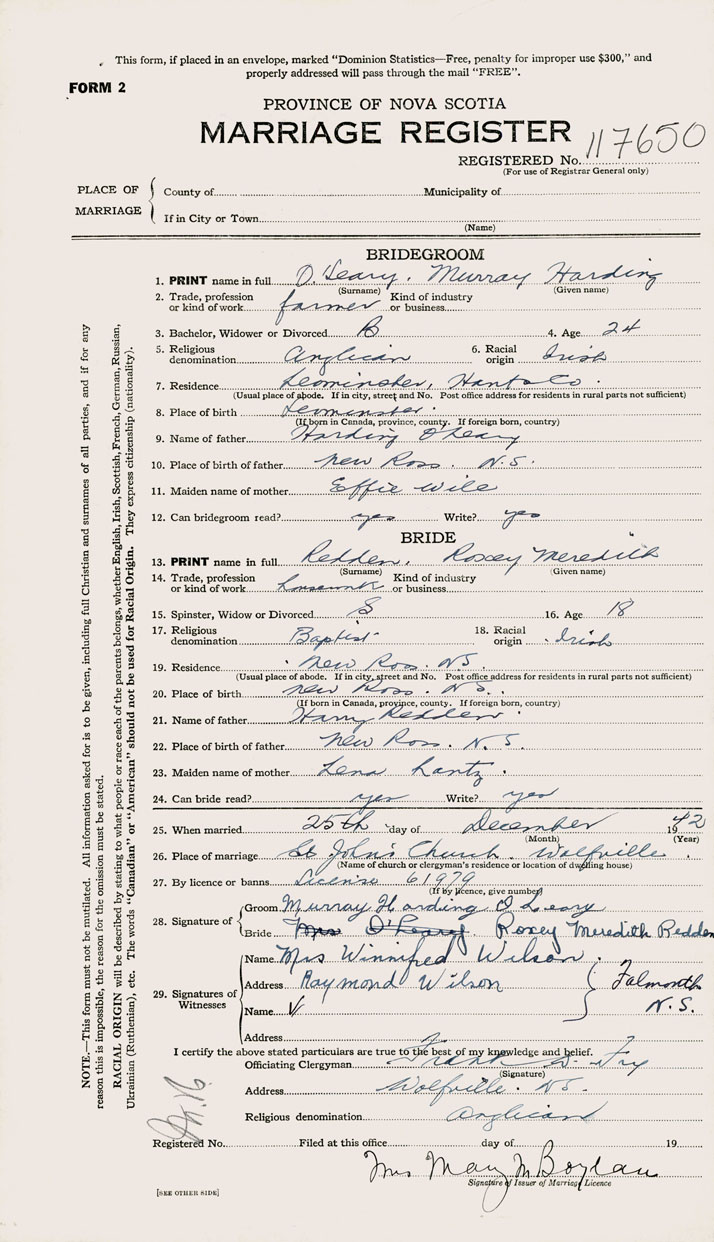 This form, if placed in an envelope, marked "Dominion Statistics—Free, penalty for improper use $300," and
properly addressed will pass through the mail "FREE".
FORM 2
PROVINCE OF NOVA SCOTIA
MARRIAGE REGISTER
REGISTERED No. 117650
(For use of Registrar General only)
PLACE OF MARRIAGE
County of Municipality of
If in City or Town
(Name)
BRIDEGROOM
1. PRINT name in full O'Leary, Murray Harding
(Surname) (Given name)
2. Trade, profession or kind of work farmer Kind of industry or business
3. Bachelor, Widower or Divorced B 4. Age 24
5. Religious denomination Anglican 6. Racial origin Irish
7. Residence Leominster, Hants Co.
(Usual place of abode. If in city, street and No. Post office address for residents in rural parts not sufficient)
8. Place of birth Leominster
(If born in Canada, province, county. If foreign born, country)
9. Name of father Harding O'Leary
10. Place of birth of father New Ross. N.S.
11. Maiden name of mother Effie Wile
12. Can bridegroom read? yes Write? yes
BRIDE
13. PRINT name in full Redden, Roxey Meredith
(Surname) (Given name)
14. Trade, profession or kind of work housework Kind of industry or business
15. Spinster, Widow or Divorced S 16. Age 18
17. Religious denomination Baptist 18. Racial origin Irish
19. Residence New Ross. N.S.
(Usual place of abode. If in city, street and No. Post office address for residents in rural parts not sufficient)
20. Place of birth New Ross. N.S.
(If born in Canada, province, county. If foreign born, country)
21. Name of father Harry Redden
22. Place of birth of father New Ross. N.S.
23. Maiden name of mother Lena Lantz
24. Can bride read? yes Write? yes
25. When married 25th day of December 1942
(Month) (Year)
26. Place of marriage St John's Church. Wolfville.
(Name of church or clergyman's residence or location of dwelling house)
27. By licence or banns License 61979
(If by licence, give number)
28. Signature of
Groom Murray Harding O'Leary
Bride Mrs O'Leary Roxey Meredith Redden
29. Signatures of Witnesses
Name Mrs Winnifred Wilson.
Address Raymond Wilson Falmouth
Name N.S.
Address
I certify the above stated particulars are true to the best of my knowledge and belief.
Officiating Clergyman Frank Fry
(Signature)
Address Wolfville. N.S.
Religious denomination Anglican
Registered No. Filed at this office day of 19
Mrs May M Boylan
Signature of Issuer of Marriage Licence
[SEE OTHER SIDE]
NOTE.—This form must not be mutilated. All information asked for is to be given, including full Christian and surnames of all parties, and if for any
reason this is impossible, the reason for the omission must be stated.
RACIAL ORIGIN will be described by stating to what people or race each of the parents belongs, whether English, Irish, Scottish, French, German, Russian,
Ukrainian (Ruthenian), etc. The words "Canadian" or "American" should not be used for Racial Origin. They express citizenship (nationality).